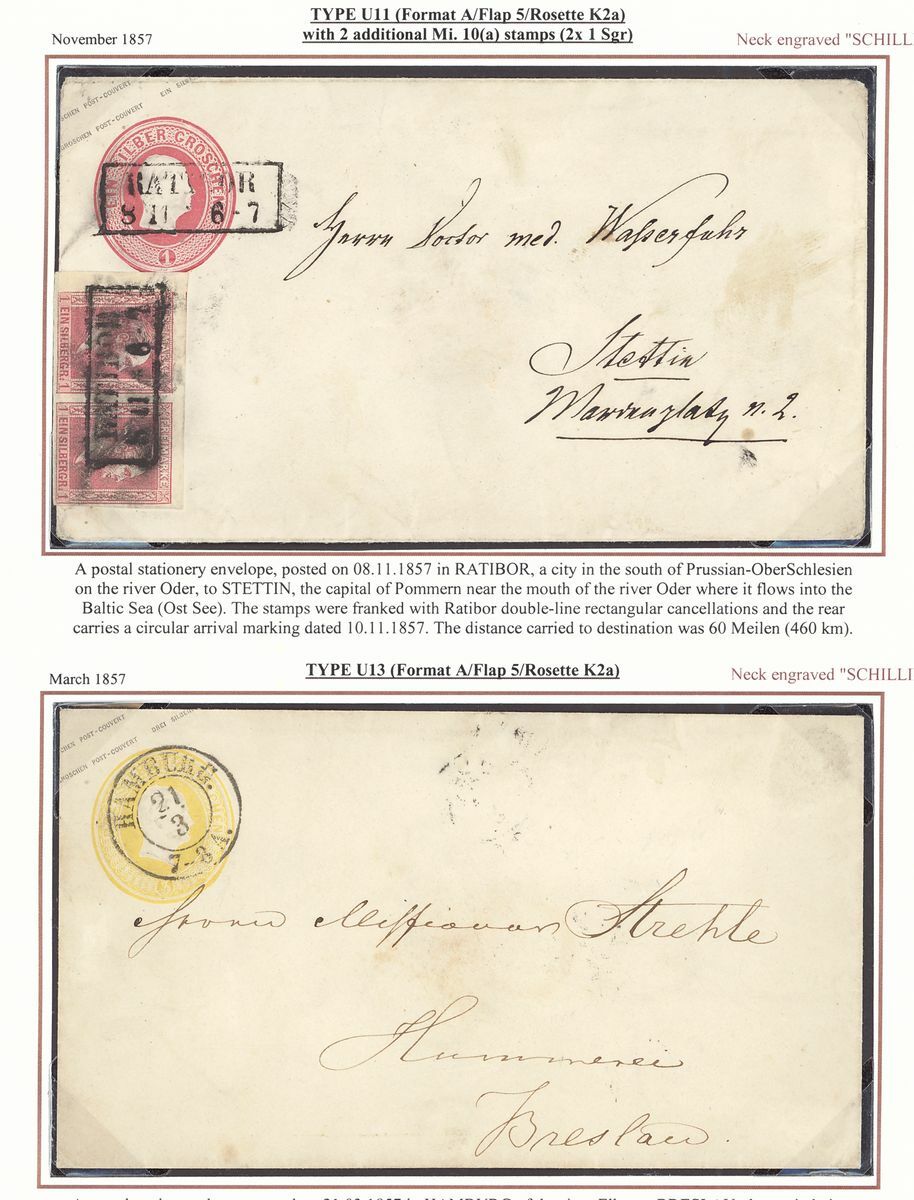 TYPE U11 (Format A/Flap 5/Rosette K2a)
November 1857
with 2 additional Mi. 10(a) stamps (2x 1 Sgr)
Neck engraved "SCHILL
SCHEN POST-COUVERT EIN SILB
GROSCHEN POST-COUVERT
EIN SILBER GROSCHEN
1
RATIBOR
8 11 6-7
Herrn Doctor med. Wasserfuhr
Stettin
n. 2.
1 EIN SILBERGR: 1
FREIMARKE
1 EIN SILBERGR: 1
FREIMARKE
RATIBOR
8 11 6-7
A postal stationery envelope, posted on 08.11.1857 in RATIBOR, a city in the south of Prussian-OberSchlesien
on the river Oder, to STETTIN, the capital of Pommern near the mouth of the river Oder where it flows into the
Baltic Sea (Ost See). The stamps were franked with Ratibor double-line rectangular cancellations and the rear
carries a circular arrival marking dated 10.11.1857. The distance carried to destination was 60 Meilen (460 km).
March 1857
TYPE U13 (Format A/Flap 5/Rosette K2a)
Neck engraved "SCHILLI
CHEN POST-COUVERT DREI SILBER
GROSCHEN POST-COUVERT
HAMBURG.
21
3
7-8 A.
Herrn Missionar Strehle
Hummerei
Breslau.